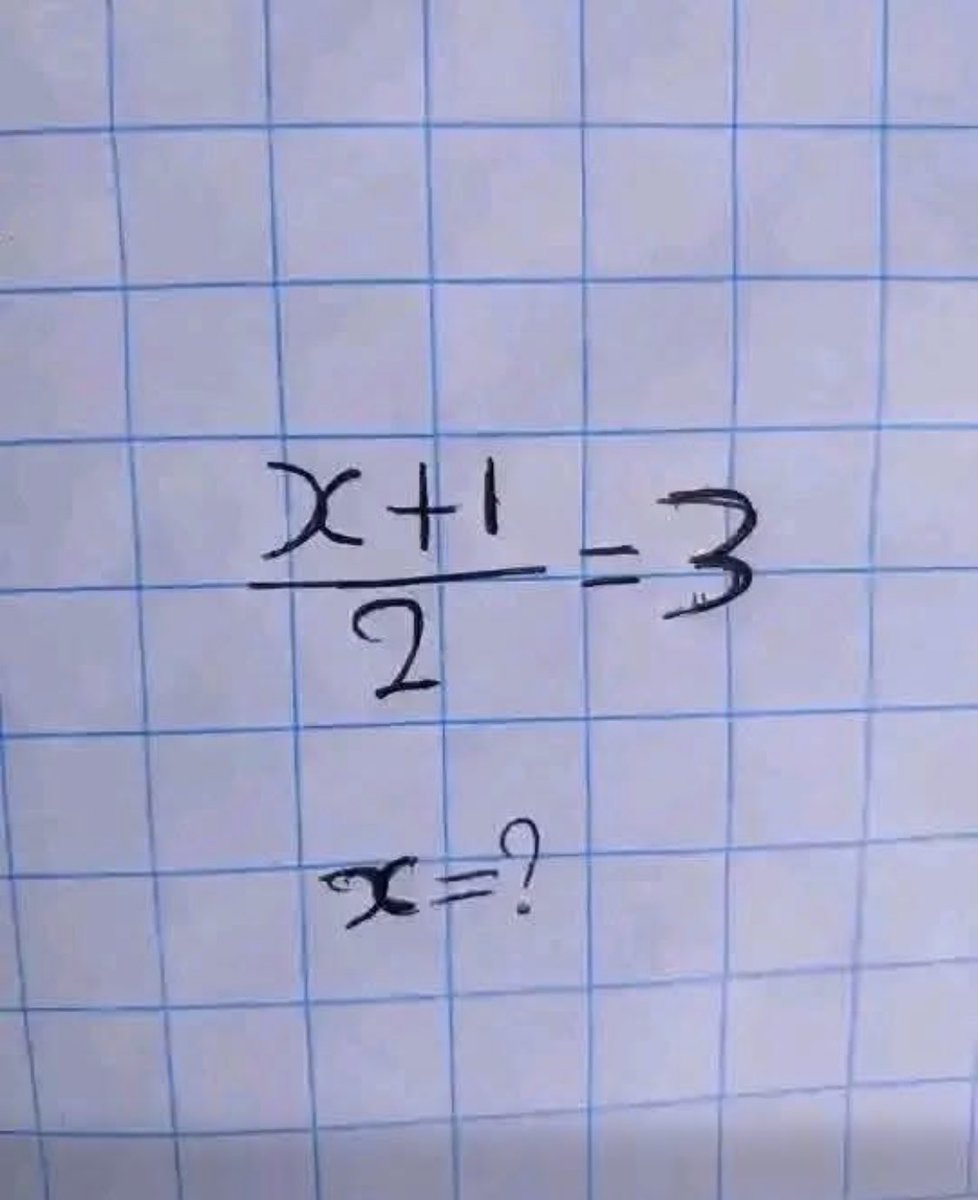 x+1
2
=3
x=?